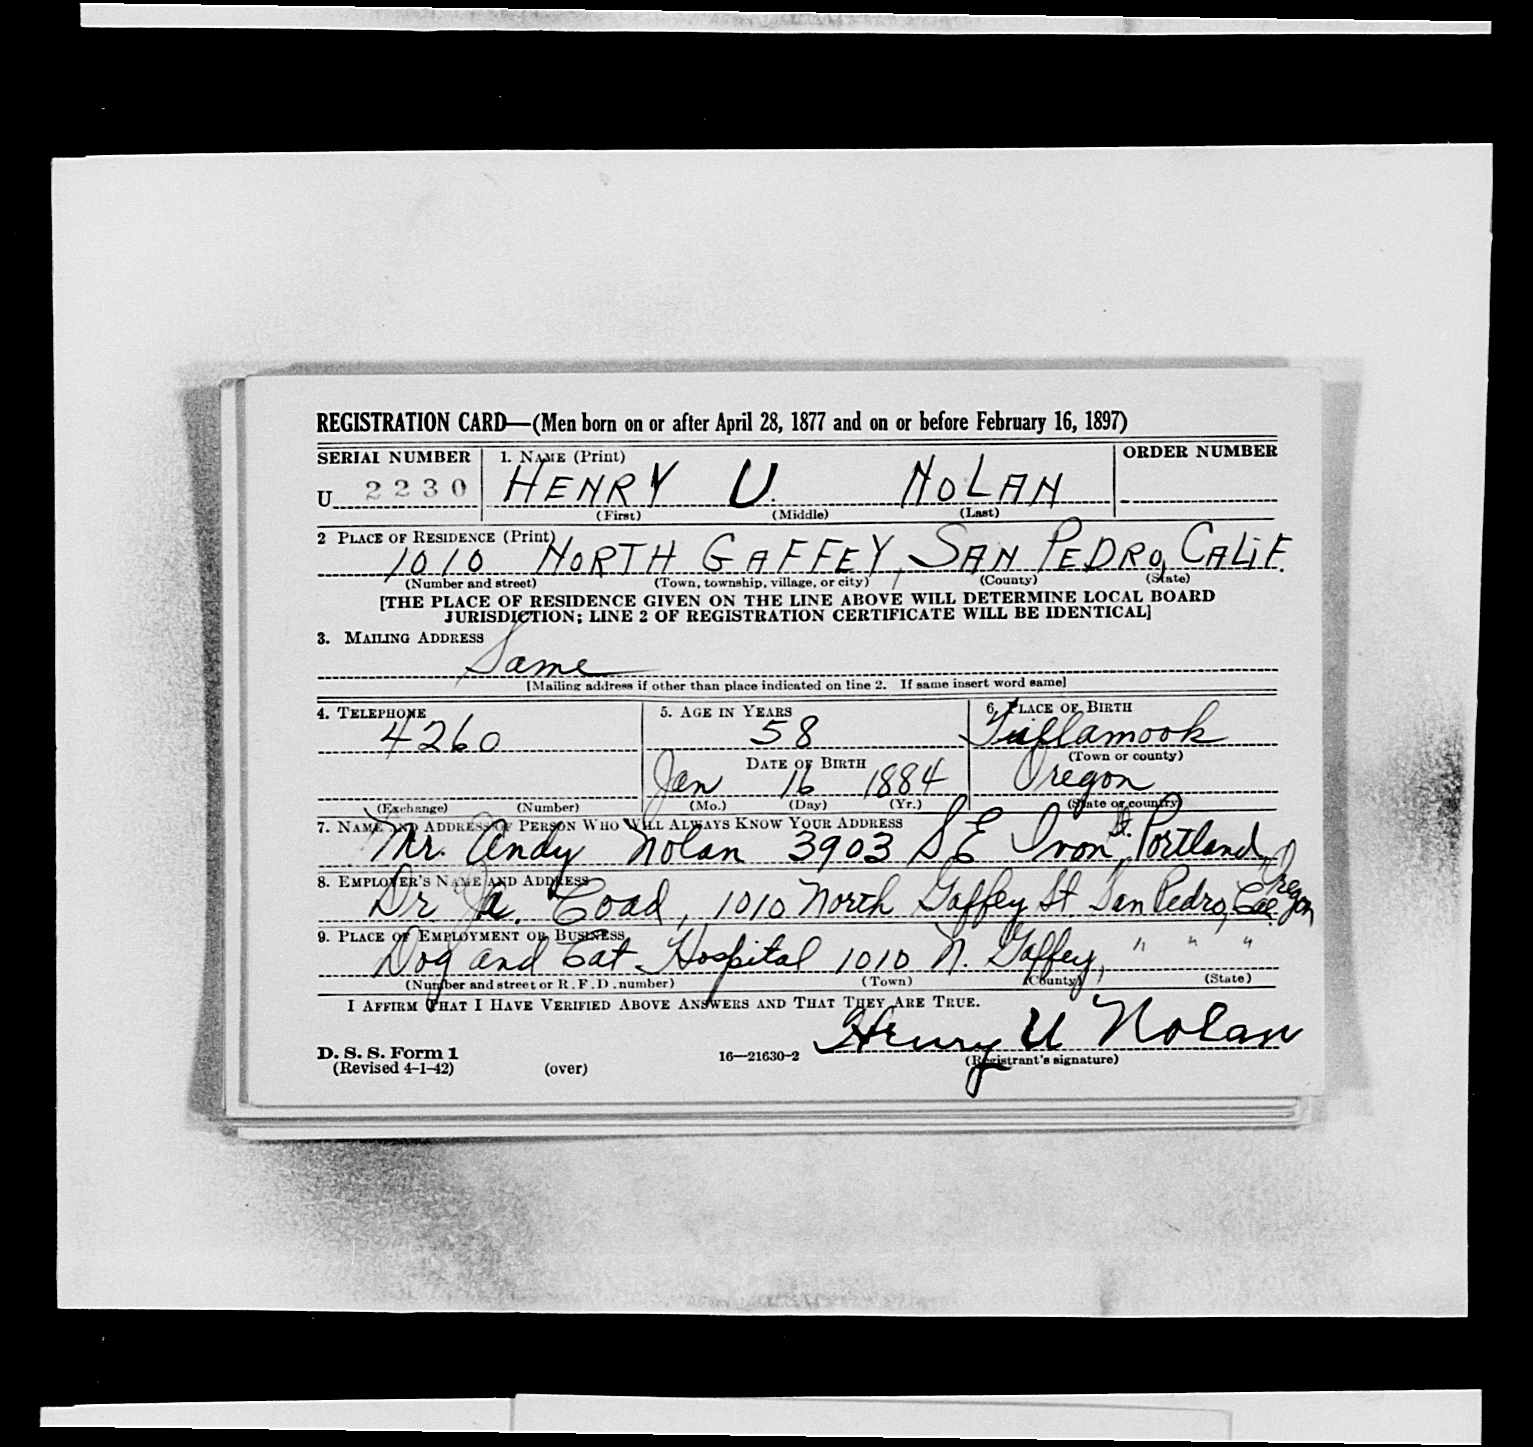 REGISTRATION CARD—(Men born on or after April 28, 1877 and on or before February 16, 1897)
SERIAL NUMBER 1. NAME (Print) ORDER NUMBER
U 2230 HENRY U. NOLAN
(First) (Middle) (Last)
2 PLACE OF RESIDENCE (Print)
1010 NORTH GAFFEY, SAN PEDRO, CALIF.
(Number and street) (Town, township, village, or city) (County) (State)
[THE PLACE OF RESIDENCE GIVEN ON THE LINE ABOVE WILL DETERMINE LOCAL BOARD
JURISDICTION; LINE 2 OF REGISTRATION CERTIFICATE WILL BE IDENTICAL]
3. MAILING ADDRESS
Same
[Mailing address if other than place indicated on line 2. If same insert word same]
4. TELEPHONE 5. AGE IN YEARS 6. PLACE OF BIRTH
4260 58 Tillamook
DATE OF BIRTH (Town or county)
Jan 16 1884 Oregon
(Exchange) (Number) (Mo.) (Day) (Yr.) (State or country)
7. NAME AND ADDRESS OF PERSON WHO WILL ALWAYS KNOW YOUR ADDRESS
Mr. Andy Nolan 3903 S E Ivon St. Portland, Oregon
8. EMPLOYER'S NAME AND ADDRESS
Dr Coad, 1010 North Gaffey St. San Pedro, Cal.
9. PLACE OF EMPLOYMENT OR BUSINESS
Dog and Cat Hospital 1010 N. Gaffey, " " "
(Number and street or R. F. D. number) (Town) (County) (State)
I AFFIRM THAT I HAVE VERIFIED ABOVE ANSWERS AND THAT THEY ARE TRUE.
Henry U Nolan
D. S. S. Form 1 16—21630-2 (Registrant's signature)
(Revised 4-1-42) (over)